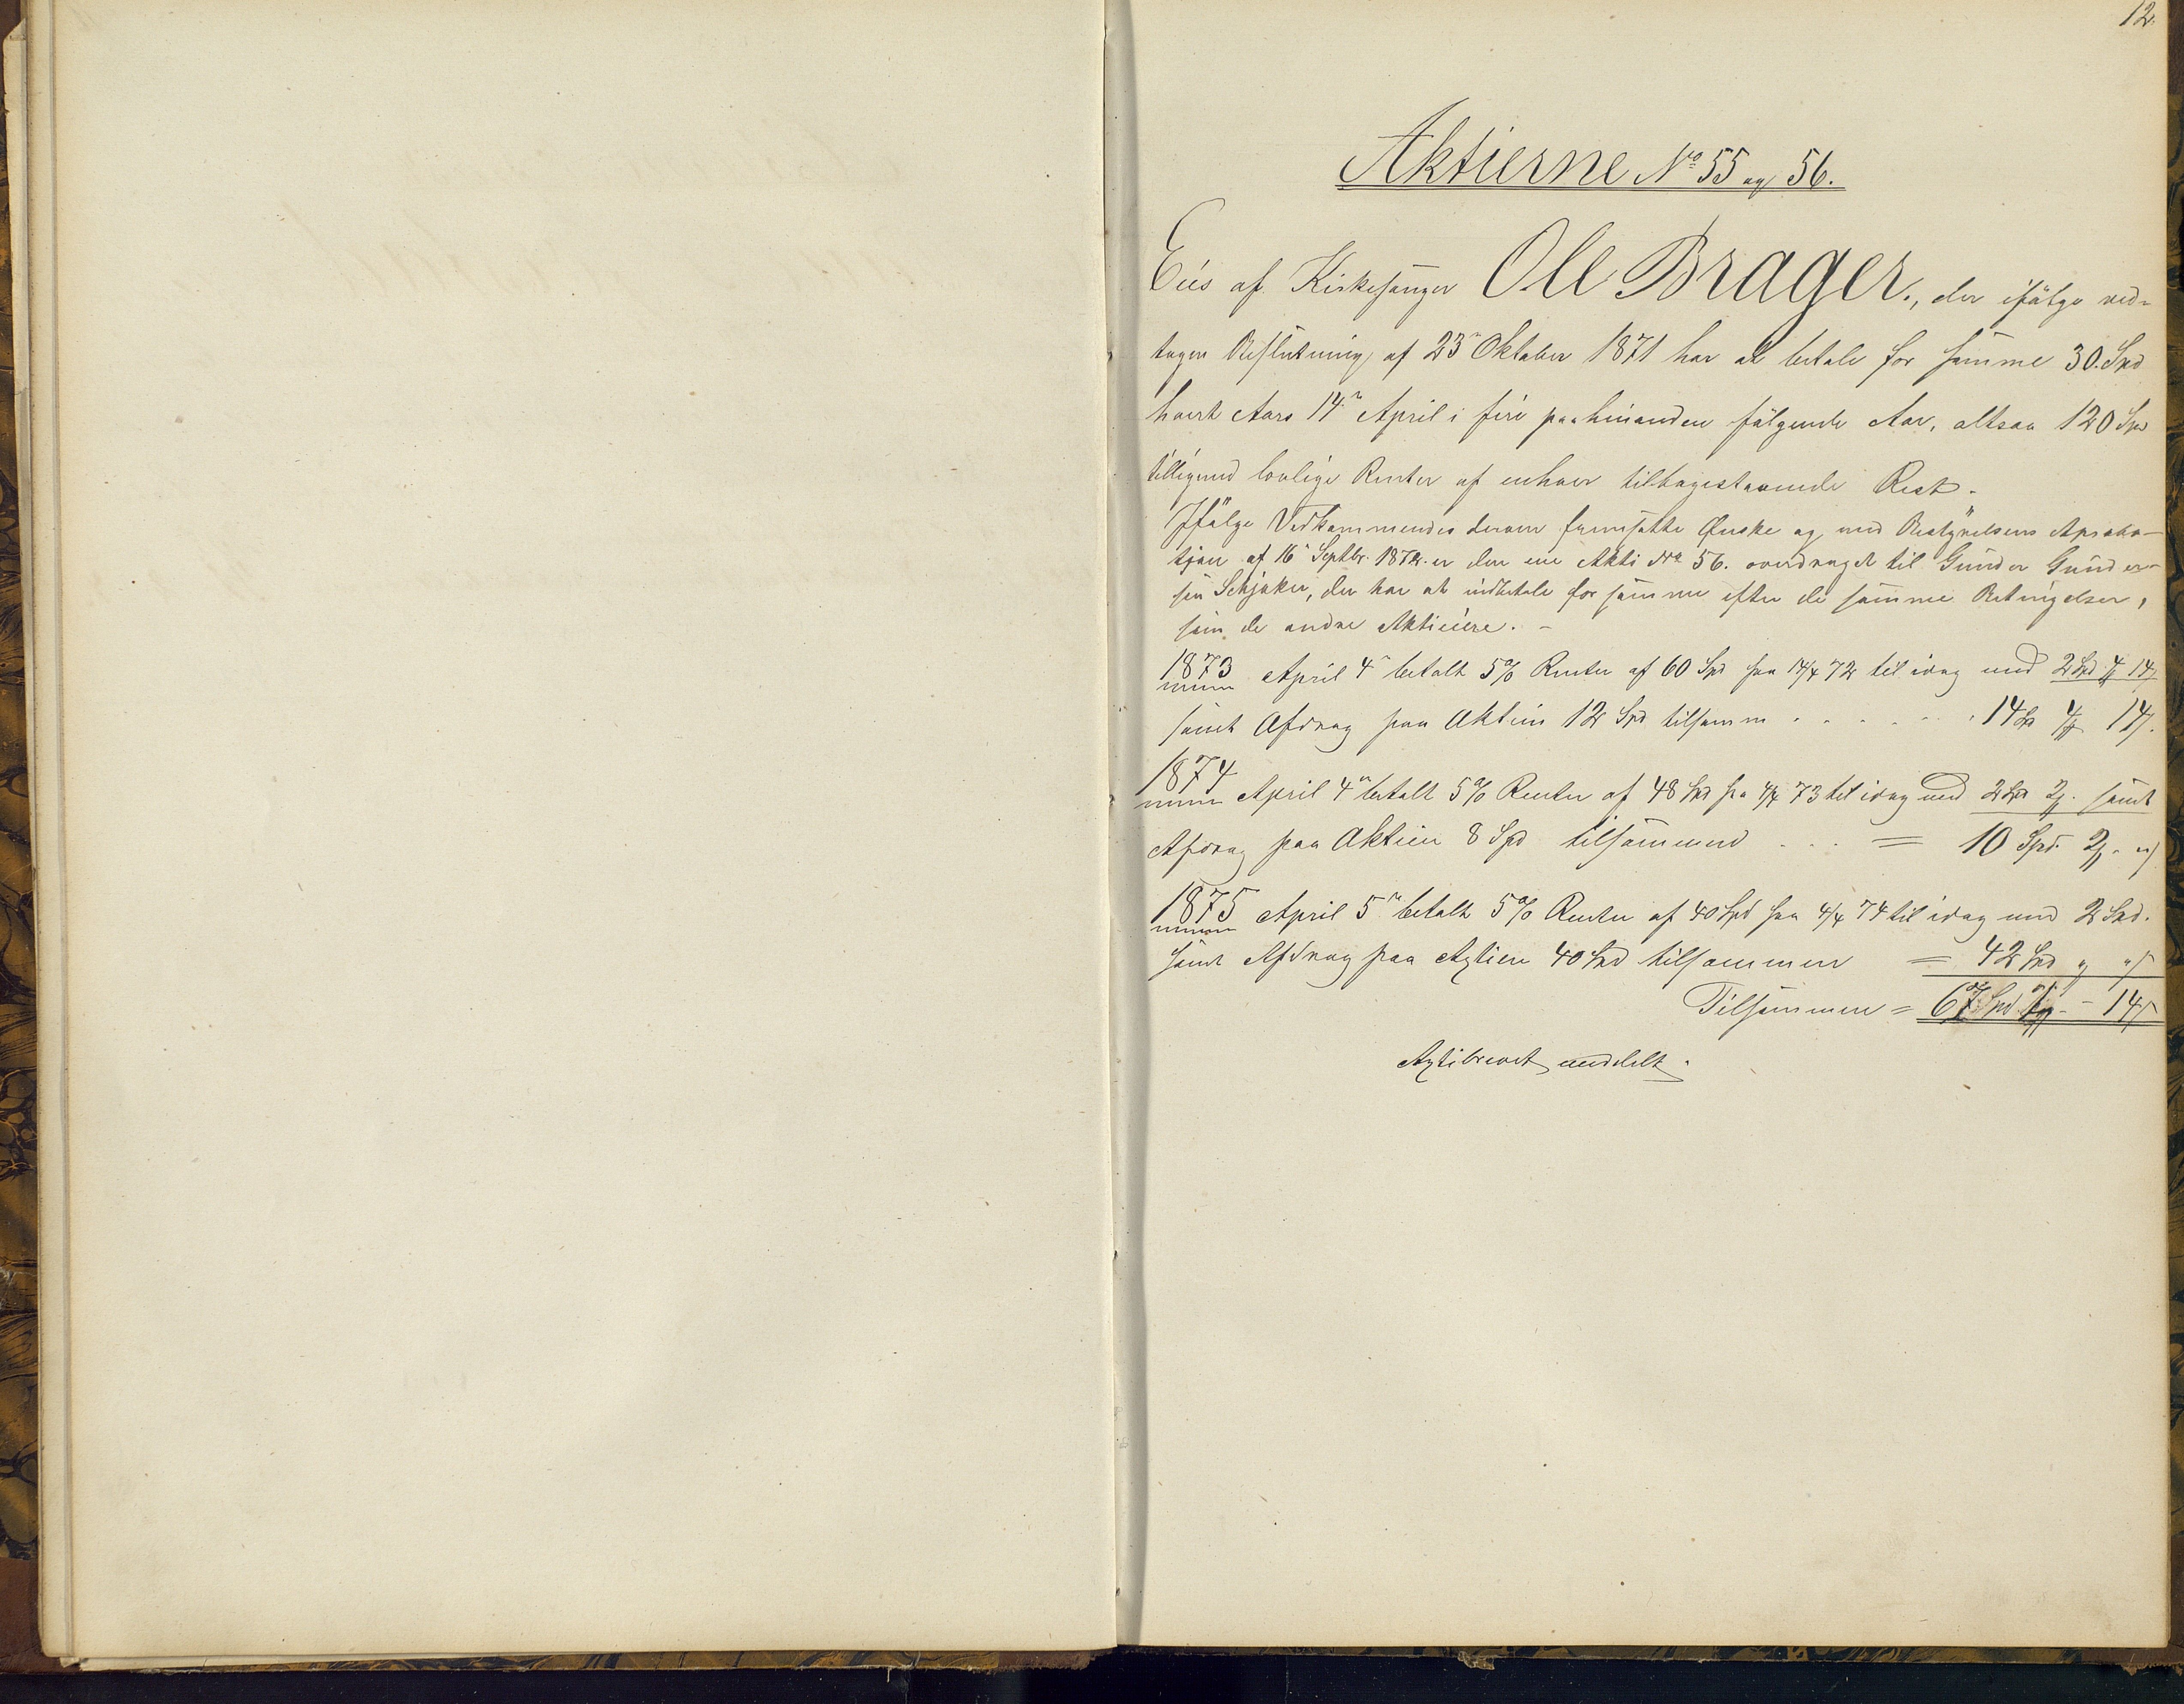 12.
Aktierne No 55 og 56.
Eies af Kirkesanger Ole Brager., der ifølge ved-
tagen Beslutning af 23 Oktober 1871 har at betale for samme 30. Spd
hvert Aars 14 April i fire paahinanden følgende Aar, altsaa 120 Spd
tilligemed lovlige Renter af enhver tilbagestaaende Rest.
Ifølge Vedkommendes derom fremsatte Ønske og med Bestyrelsens Aproba-
tjon af 16 Septbr. 1872. er den ene Aktie No 56. overdraget til Gunder Gunder-
sen Schjaker, der har at indbetale for samme efter de samme Betingelser,
som de andre Aktieeiere. -
1873 April 4 betalt 5% Renter af 60 Spd fra 14/4 72 til idag med 2 Spd 4 14
samt Afdrag paa Aktien 12 Spd tilsamm . . . . . . 14 Spd 4 14.
1874 April 4 betalt 5% Renter af 48 Spd fra 4/4 73 til idag med 2 Spd 2. samt
Afdrag paa Aktien 8 Spd tilsammen . . . = 10 Spd. 2. "
1875 April 5 betalt 5% Renter af 40 Spd fra 4/4 74 til idag med 2 Spd.
samt Afdrag paa Aktien 40 Spd tilsammen = 42 Spd " "
Tilsammen = 67 Spd. 1 - 14
Aktibrevet uddelt.